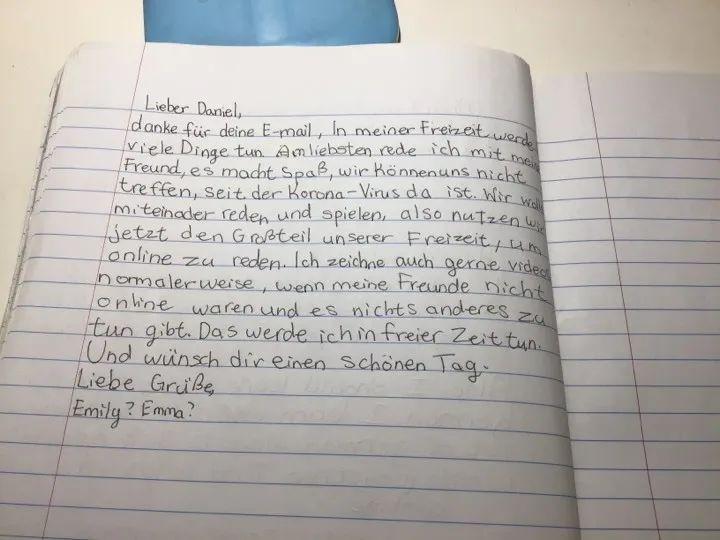 Lieber Daniel,
danke für deine E-mail, In meiner Freizeit werde
viele Dinge tun. Am liebsten rede ich mit
Freund, es macht Spaß, wir können uns nicht
treffen, seit der Korona-Virus da ist. Wir
miteinader reden und spielen, also nutzen wir
jetzt den Großteil unserer Freizeit, um
online zu reden. Ich zeichne auch gerne
normalerweise, wenn meine Freunde nicht
online waren und es nichts anderes zu
tun gibt. Das werde ich in freier Zeit tun.
Und wünsch dir einen schönen Tag.
Liebe Grüße,
Emily? Emma?